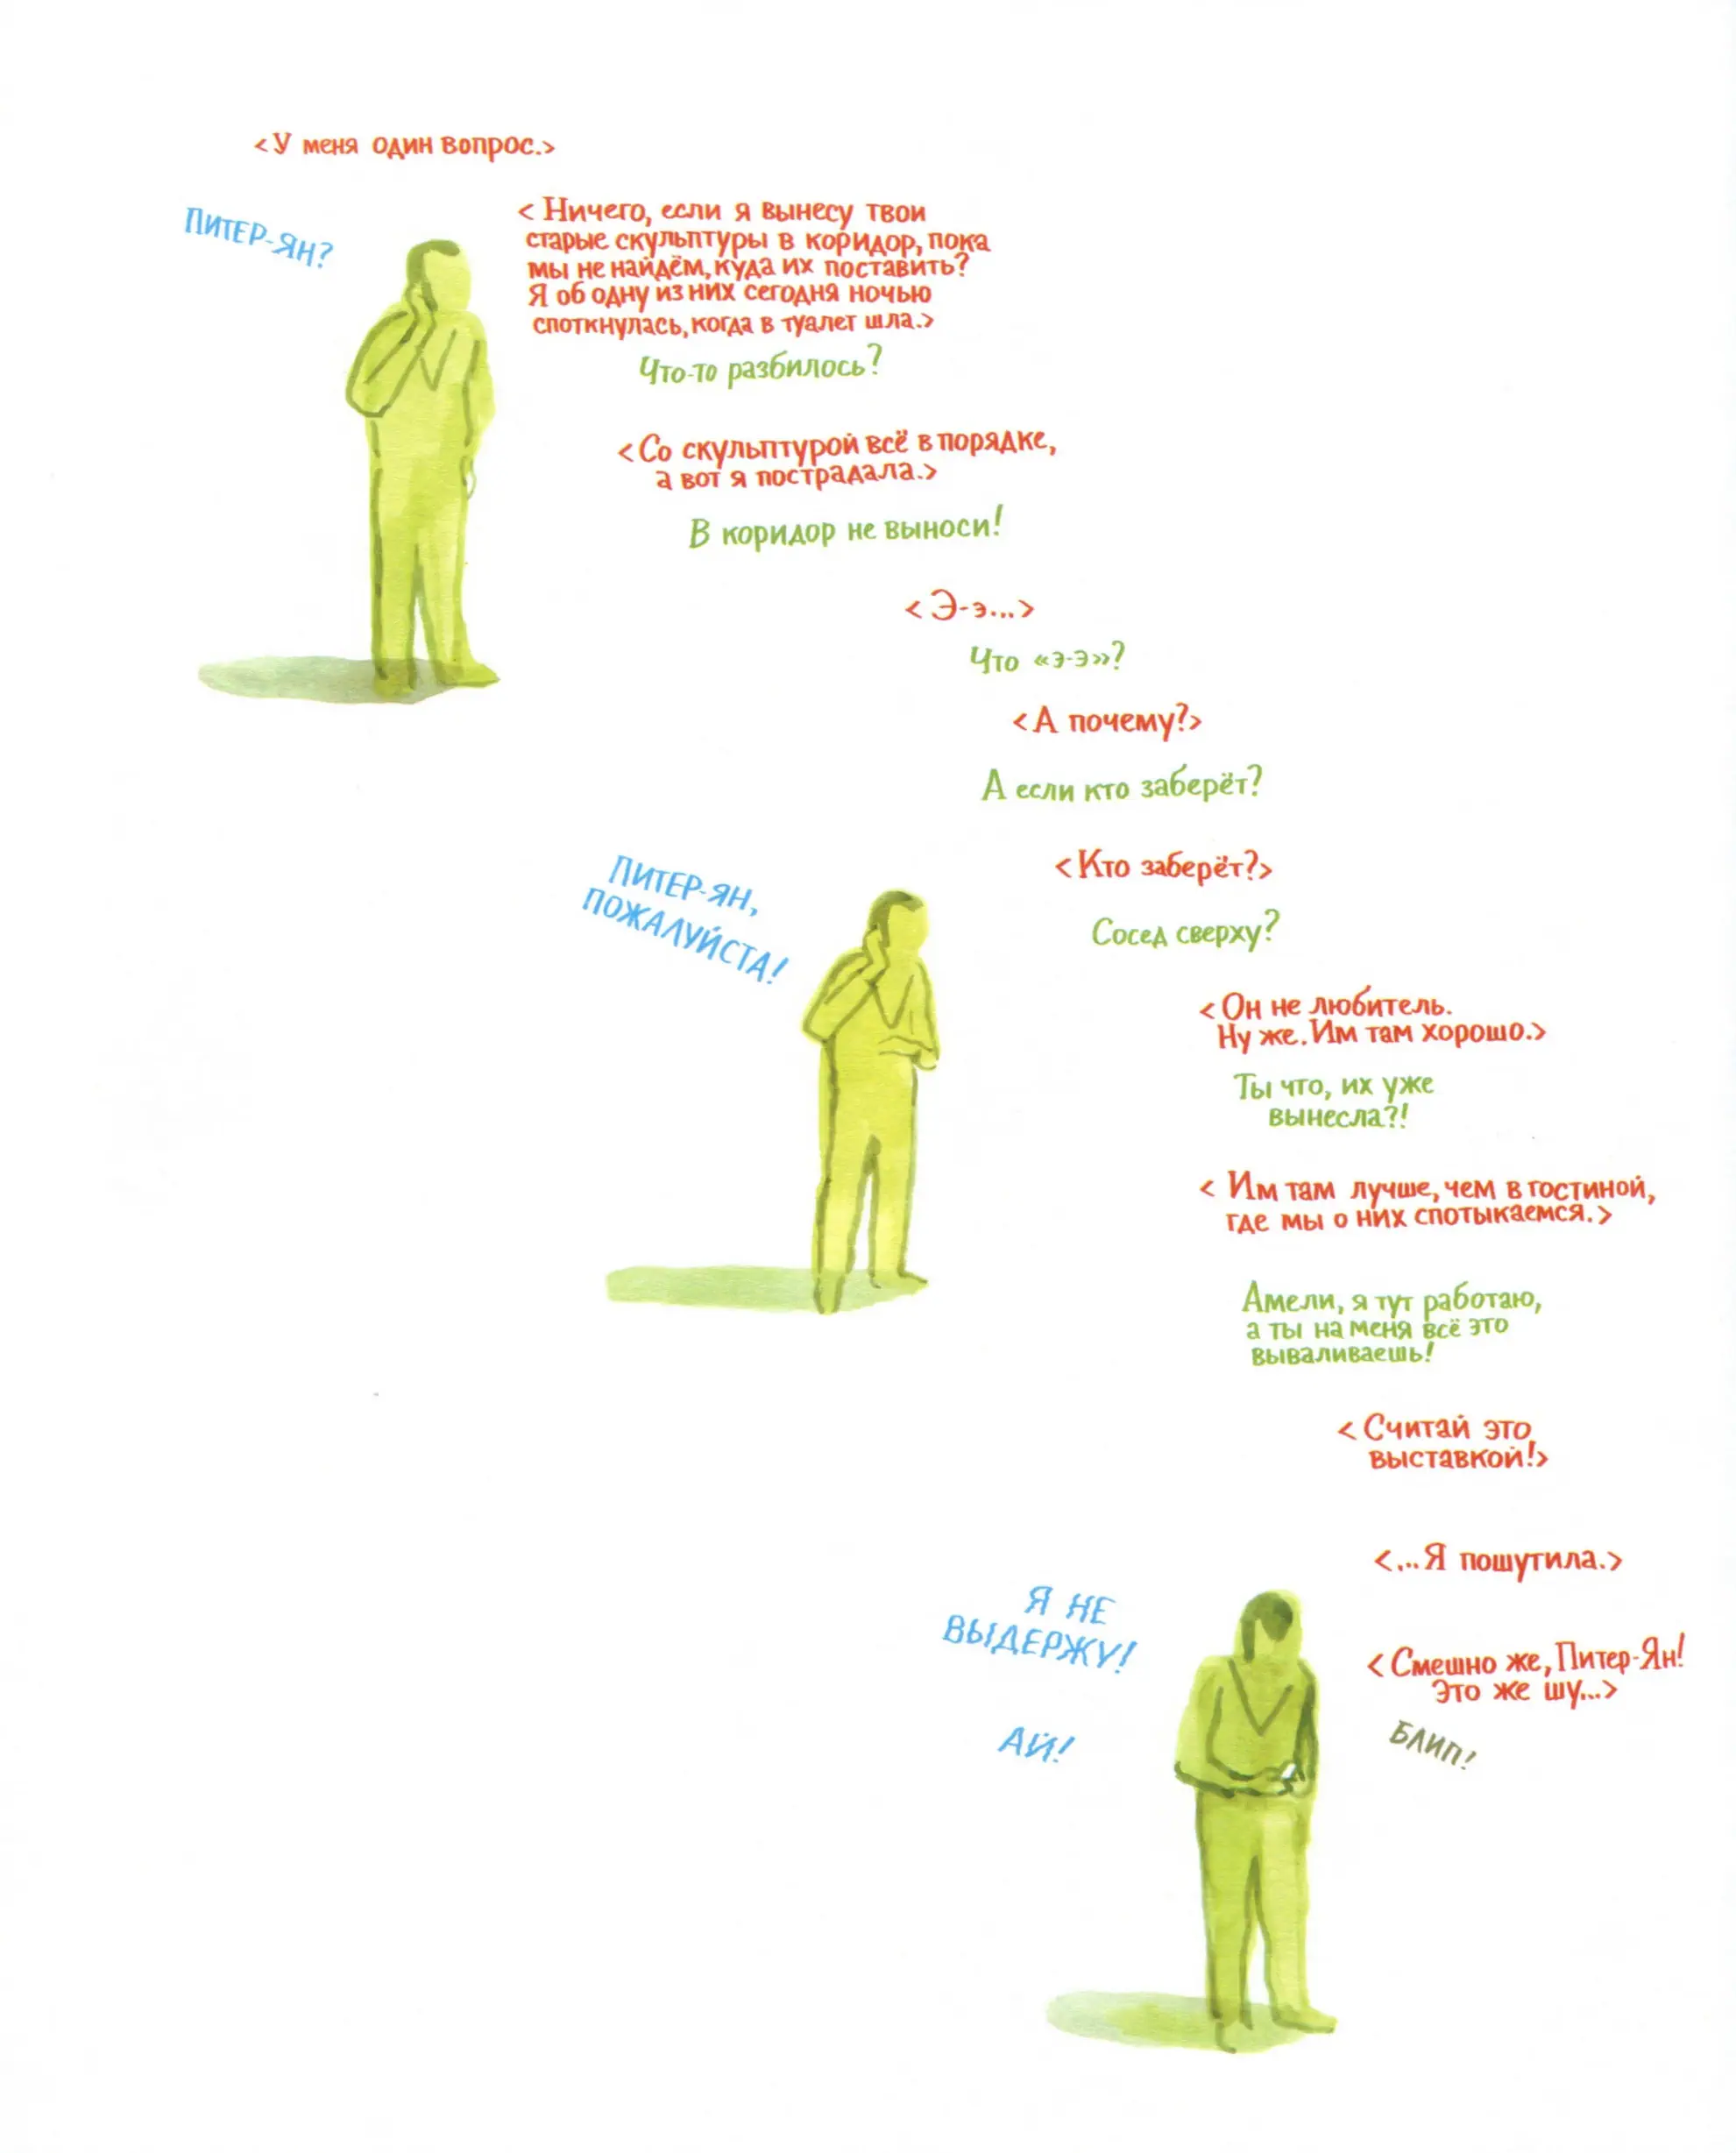 <У меня один вопрос.>
ПИТЕР-ЯН?
<Ничего, если я вынесу твои
старые скульптуры в коридор, пока
мы не найдём, куда их поставить?
Я об одну из них сегодня ночью
споткнулась, когда в туалет шла.>
Что-то разбилось?
<Со скульптурой всё в порядке,
а вот я пострадала.>
В коридор не выноси!
<Э-э...>
Что «э-э»?
<А почему?>
А если кто заберёт?
<Кто заберёт?>
ПИТЕР-ЯН,
ПОЖАЛУЙСТА!
Сосед сверху?
<Он не любитель.
Ну же. Им там хорошо.>
Ты что, их уже
вынесла?!
<Им там лучше, чем в гостиной,
где мы о них спотыкаемся.>
Амели, я тут работаю,
а ты на меня всё это
вываливаешь!
<Считай это
выставкой!>
<...Я пошутила.>
Я НЕ
ВЫДЕРЖУ!
<Смешно же, Питер-Ян!
Это же шу...>
АЙ!
БЛИП!